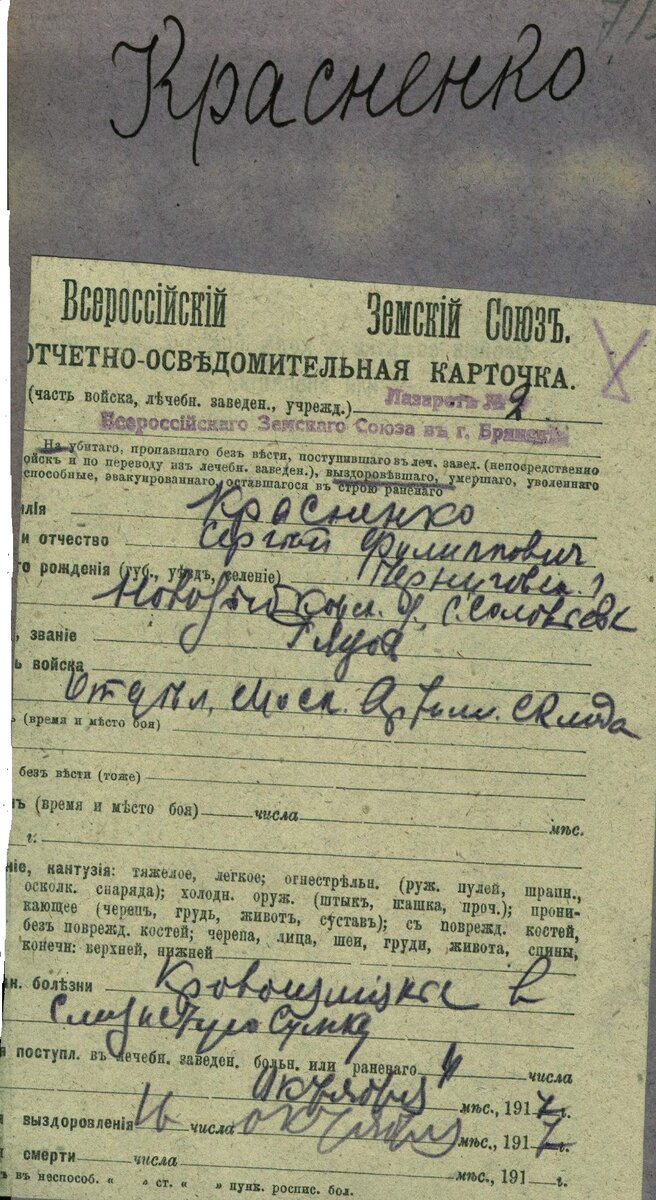 Красненко
Всероссійскій Земскій Союзъ.
ОТЧЕТНО-ОСВѢДОМИТЕЛЬНАЯ КАРТОЧКА.
(часть войска, лѣчебн. заведен., учрежд.) Лазаретъ № 2
Всероссійскаго Земскаго Союза въ г. Брянскѣ
На убитаго, пропавшаго безъ вѣсти, поступившаго въ леч. завед. (непосредственно
ойскъ и по переводу изъ лечебн. заведен.), выздоровѣвшаго, умершаго, уволеннаго
способные, эвакуированнаго оставшагося въ строю раненаго
илія Красненко
и отчество Сергѣй Филиппович
го рожденія (губ., уѣздъ, селеніе) Чернигов.
с. Соловьевк
, званіе Ряд
ь войска
Отдѣл. Моск. Арт. склада
ъ (время и мѣсто боя)
безъ вѣсти (тоже)
ъ (время и мѣсто боя) числа мѣс.
г.
ніе, кантузія: тяжелое, легкое; огнестрѣльн. (руж. пулей, шрапн.,
осколк. снаряда); холодн. оруж. (штыкъ, шашка, проч.); прони-
кающее (черепъ, грудь, животъ, суставъ); съ поврежд. костей,
безъ поврежд. костей; черепа, лица, шеи, груди, живота, спины,
конечн: верхней, нижней
ан. болѣзни Кровоизліяніе в
слизистую сумку
я поступл. въ лечебн. заведен. больн. или раненаго 4 числа
Октября мѣс., 1917 г.
я выздоровленія 16 числа октября мѣс., 1917 г.
я смерти числа мѣс., 191 г.
ъ въ неспособ. " " ст. " " пунк. роспис. бол.